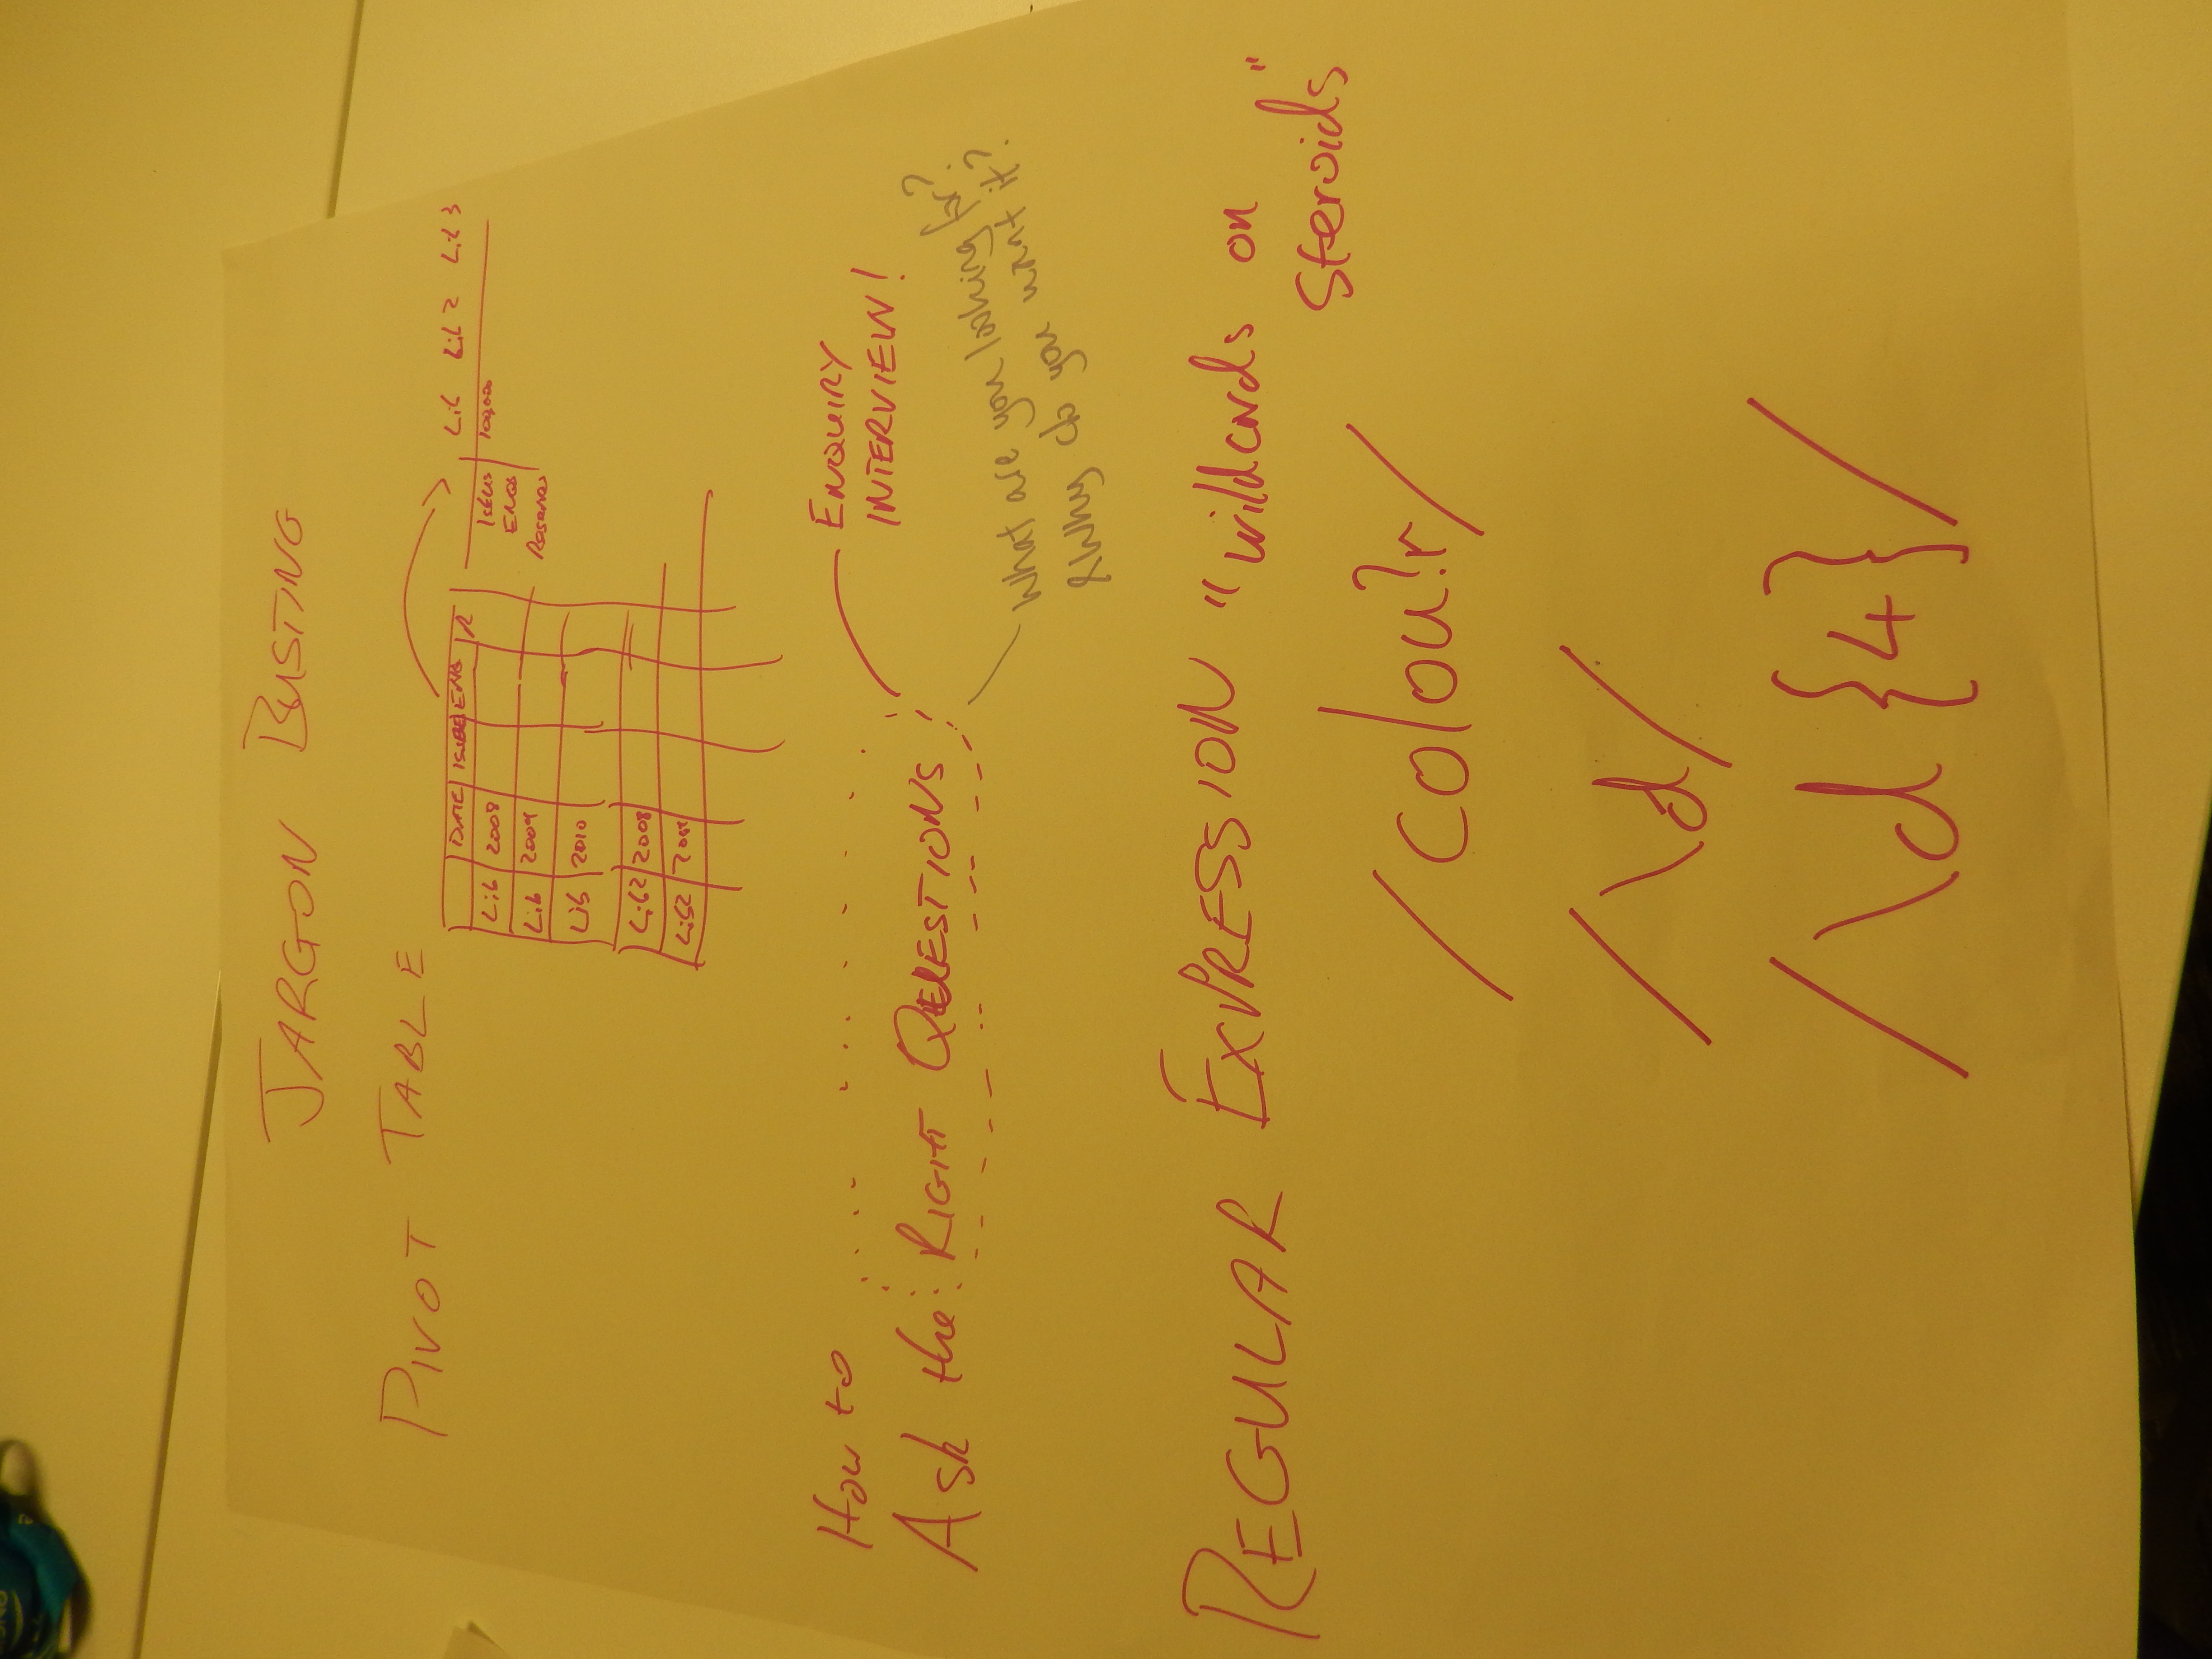 JARGON BUSTING
PIVOT TABLE
DATE ISSUE ENQ R
Lib 2008
Lib 2009
Lib 2010
Lib2 2008
Lib2 2009
Lib Lib 2 Lib 3
Issues 100,000
ENQs
Reserves
How to
Ask the RIGHT QUESTIONS
ENQUIRY
INTERVIEW!
What are you looking for?
& Why do you want it?
REGULAR EXPRESSION "wildcards on
steroids"
/colou?r/
/\d/
/\d{4}/